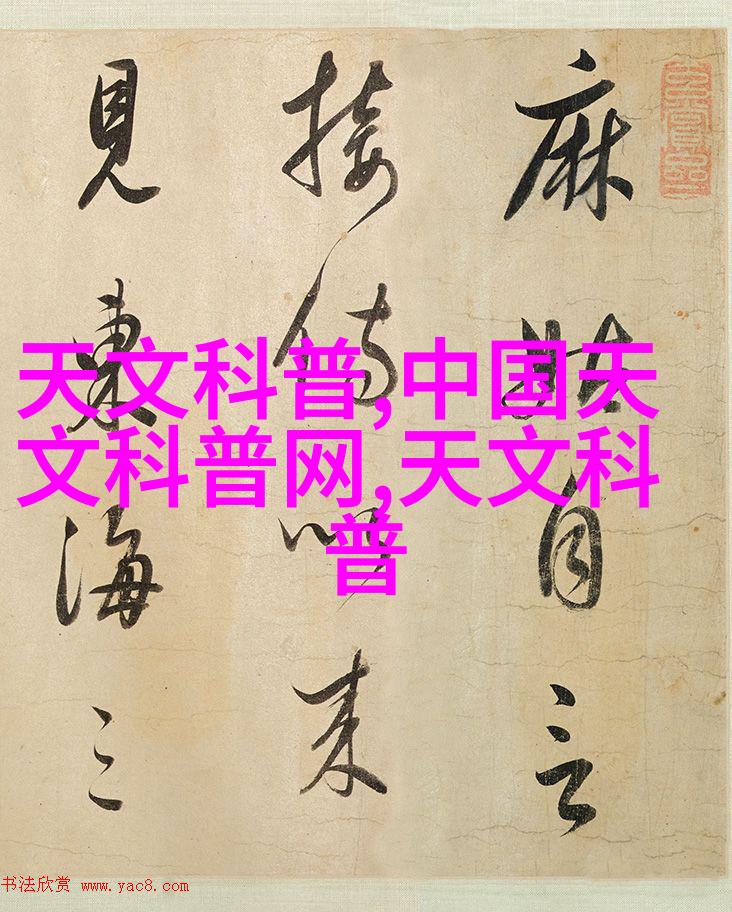 麻姑自言
接侍以来
見東海三
天文科普,中国天
文科普网,天文科
普
书法欣赏 www.yac8.com